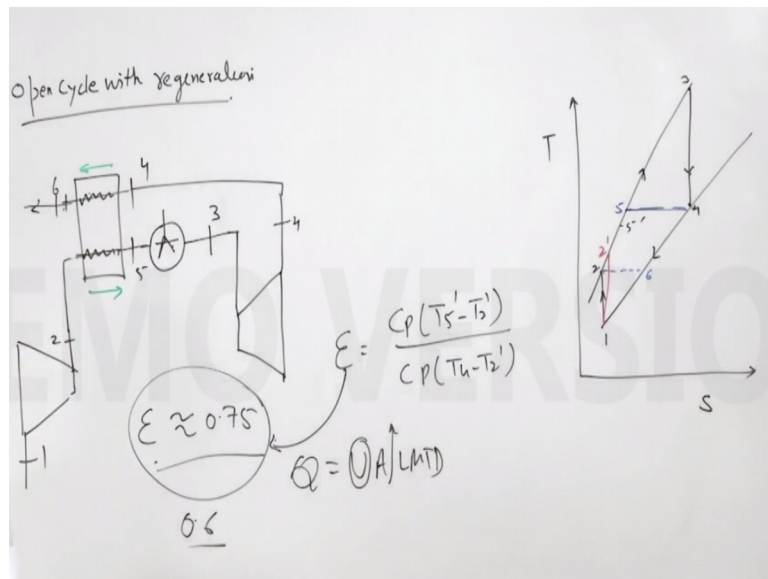 Open Cycle with regeneration
6
4
3
4
5
2
1
ε = Cp(T5'-T2') / Cp(T4-T2')
ε ≈ 0.75
0.6
Q = UA LMTD
T
3
5
5'
4
2'
2
6
1
S
EMO VERSIO